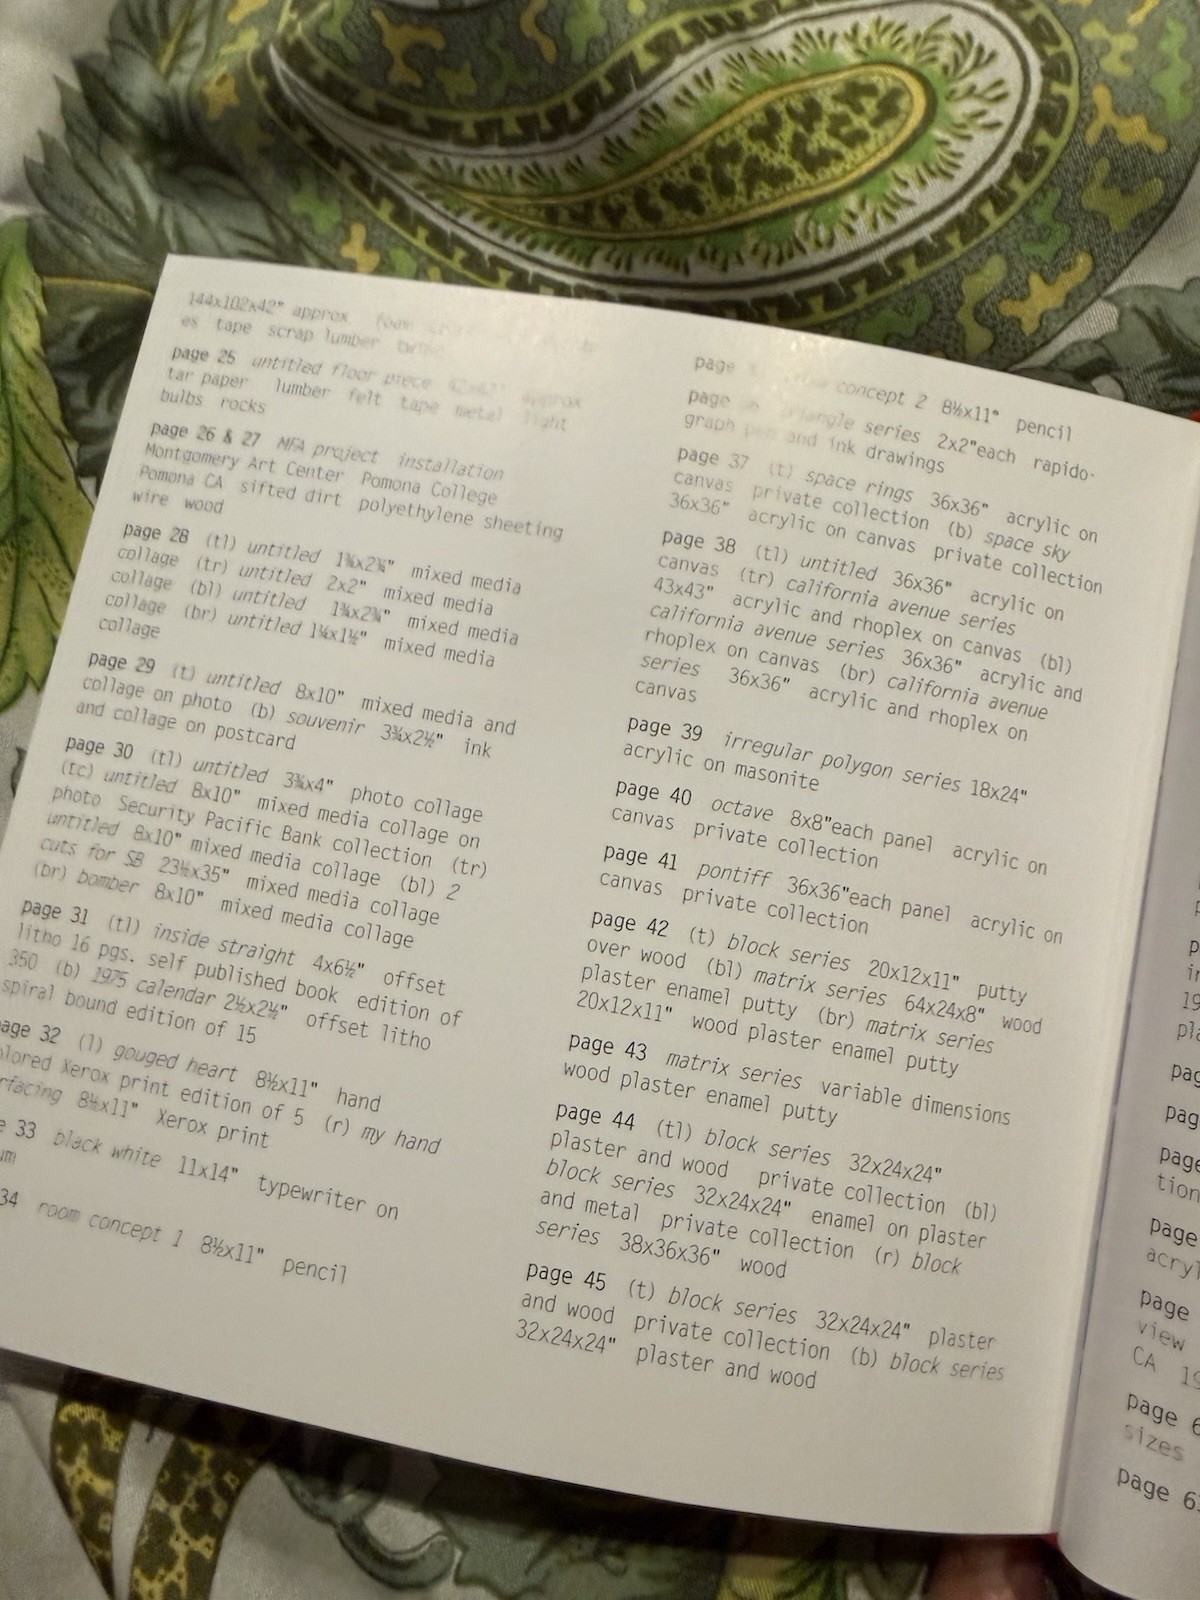 144x102x42" approx foam
es tape scrap lumber twine
page 25 untitled floor piece 42x42" approx
tar paper lumber felt tape metal light
bulbs rocks
page 26 & 27 MFA project installation
Montgomery Art Center Pomona College
Pomona CA sifted dirt polyethylene sheeting
wire wood
page 28 (tl) untitled 1¾x2¾" mixed media
collage (tr) untitled 2x2" mixed media
collage (bl) untitled 1¾x2¾" mixed media
collage (br) untitled 1¼x1½" mixed media
collage
page 29 (t) untitled 8x10" mixed media and
collage on photo (b) souvenir 3¾x2½" ink
and collage on postcard
page 30 (tl) untitled 3¾x4" photo collage
(tc) untitled 8x10" mixed media collage on
photo Security Pacific Bank collection (tr)
untitled 8x10" mixed media collage (bl) 2
cuts for SB 23½x35" mixed media collage
(br) bomber 8x10" mixed media collage
page 31 (tl) inside straight 4x6½" offset
litho 16 pgs. self published book edition of
350 (b) 1975 calendar 2½x2½" offset litho
spiral bound edition of 15
age 32 (l) gouged heart 8½x11" hand
lored Xerox print edition of 5 (r) my hand
rfacing 8½x11" Xerox print
e 33 black white 11x14" typewriter on
um
34 room concept 1 8½x11" pencil
page concept 2 8½x11" pencil
page triangle series 2x2"each rapido-
graph pen and ink drawings
page 37 (t) space rings 36x36" acrylic on
canvas private collection (b) space sky
36x36" acrylic on canvas private collection
page 38 (tl) untitled 36x36" acrylic on
canvas (tr) california avenue series
43x43" acrylic and rhoplex on canvas (bl)
california avenue series 36x36" acrylic and
rhoplex on canvas (br) california avenue
series 36x36" acrylic and rhoplex on
canvas
page 39 irregular polygon series 18x24"
acrylic on masonite
page 40 octave 8x8"each panel acrylic on
canvas private collection
page 41 pontiff 36x36"each panel acrylic on
canvas private collection
page 42 (t) block series 20x12x11" putty
over wood (bl) matrix series 64x24x8" wood
plaster enamel putty (br) matrix series
20x12x11" wood plaster enamel putty
page 43 matrix series variable dimensions
wood plaster enamel putty
page 44 (tl) block series 32x24x24"
plaster and wood private collection (bl)
block series 32x24x24" enamel on plaster
and metal private collection (r) block
series 38x36x36" wood
page 45 (t) block series 32x24x24" plaster
and wood private collection (b) block series
32x24x24" plaster and wood
p
in
19
pla
pag
pag
page
tion
page
acryl
page
view
CA 19
page 6
sizes
page 61